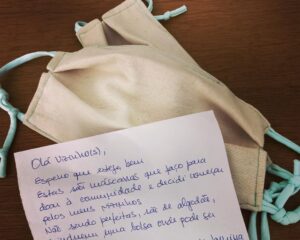 Olá Vizinho(s),
Espero que esteja bem
Estas são máscaras que faço para
doar à comunidade e decidi começar
pelos meus vizinhos
Não sendo perfeitas, são de algodão,
uma bolsa onde pode ser